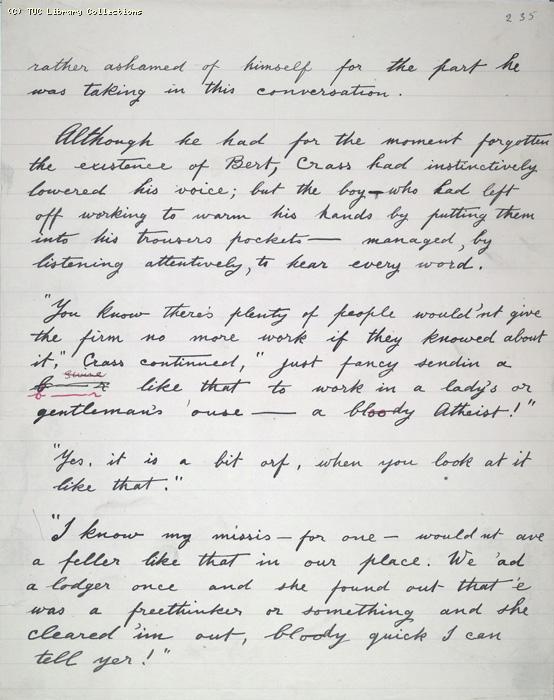 (C) TUC Library Collections
235
rather ashamed of himself for the part he
was taking in this conversation.
Although he had for the moment forgotten
the existence of Bert, Crass had instinctively
lowered his voice; but the boy — who had left
off working to warm his hands by putting them
into his trousers pockets — managed, by
listening attentively, to hear every word.
"You know there's plenty of people would'nt give
the firm no more work if they knowed about
it," Crass continued, "just fancy sendin a
swine
b——r like that to work in a lady's or
gentleman's 'ouse — a bloody Atheist!"
"Yes, it is a bit orf, when you look at it
like that."
"I know my missis — for one — would'nt ave
a feller like that in our place. We 'ad
a lodger once and she found out that 'e
was a freethinker or something and she
cleared 'im out, bloody quick I can
tell yer!"